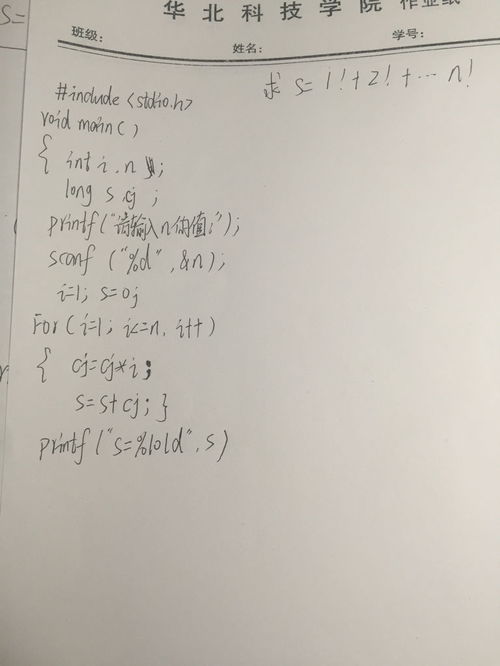 S=
华北科技学院 作业纸
班级: 姓名: 学号:
求 s=1!+2!+…n!
#include <stdio.h>
void main()
{ int i,n;
long s,cj;
printf("请输入n的值:");
scanf ("%d",&n);
i=1; s=0;
For(i=1; i<=n, i++)
{ cj=cj*i;
s=s+cj; }
printf("s=%10ld",s)